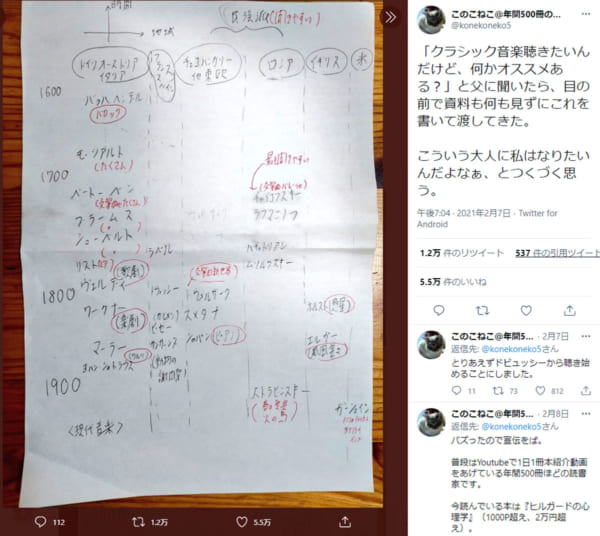 時間
地域
ドイツ・オーストリア
イタリア
フランス
スペイン
チェコ・ハンガリー
他東欧
ロシア
イギリス
米
1600
バッハ ヘンデル
バロック
モーツァルト
(たくさん)
1700
ベートーベン
ブラームス
シューベルト
リスト
ヴェルディ
(歌劇)
ラベル
チャイコフスキー
ラフマニノフ
ハチャトリアン
ムソルグスキー
1800
ワーグナー
(楽劇)
ドビュッシー
ビゼー
サンサーンス
ドヴォルザーク
スメタナ
ショパン
(ピアノ)
ホルスト
(惑星)
エルガー
(威風堂々)
マーラー
ヨハンシュトラウス
1900
ストラビンスキー
(春の祭典
火の鳥)
ガーシュイン
<現代音楽>
112
1.2万
5.5万
このこねこ@年間500冊の...
@konekoneko5
「クラシック音楽聴きたいんだけど、何かオススメある?」と父に聞いたら、目の前で資料も何も見ずにこれを書いて渡してきた。
こういう大人に私はなりたいんだよなぁ、とつくづく思う。
午後7:04 · 2021年2月7日 · Twitter for Android
1.2万 件のリツイート 537 件の引用ツイート
5.5万 件のいいね
このこねこ@年間5... · 2月7日
返信先: @konekoneko5さん
とりあえずドビュッシーから聴き始めることにしました。
11 73 812
このこねこ@年間5... · 2月8日
返信先: @konekoneko5さん
バズったので宣伝をば。
普段はYoutubeで1日1冊本紹介動画をあげている年間500冊ほどの読書家です。
今読んでいる本は『ヒルガードの心理学』(1000P超え、2万円超え)。